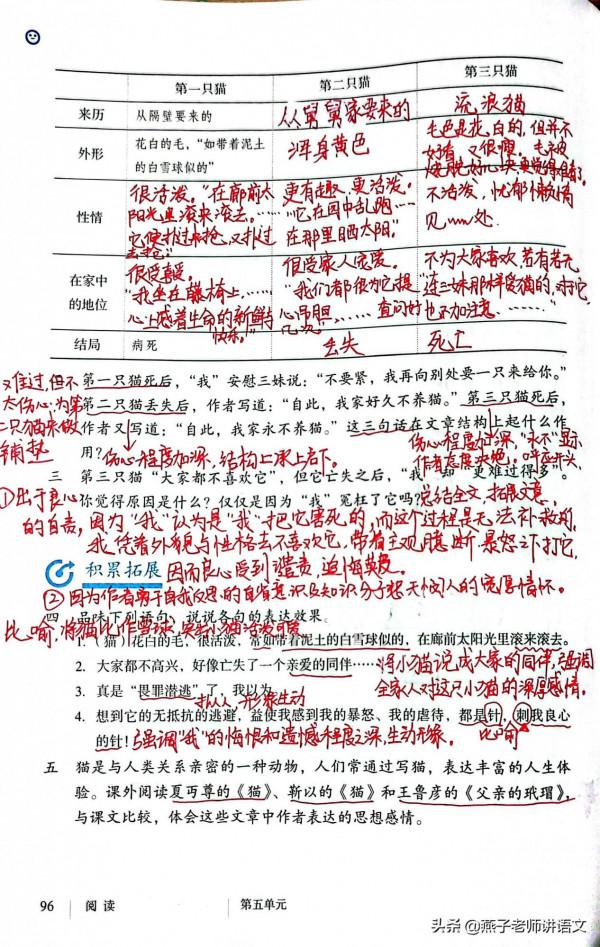 第一只猫 第二只猫 第三只猫
来历 从隔壁要来的 从舅舅家要来的 流浪猫
外形 花白的毛，“如带着泥土的白雪球似的” 浑身黄色 毛色是花白的，但并不好看，又很瘦。毛被烧脱好几块更觉得难看了
性情 很活泼。“在廊前太阳光里滚来滚去。……它便扑过来抢，又扑过去抢” 更有趣、更活泼。“……它在园中乱跑……在那里晒太阳。” 不活泼，忧郁懒惰
在家中的地位 很受喜爱。“我坐在藤椅上，……心上感着生命的新鲜与快乐。” 很受家人宠爱。“我们都很为它提心吊胆，……查问好几次 不为大家喜欢，若有若无“连三妹那样爱猫的，对于它也不加注意……”
结局 病死 丢失 死亡
第一只猫死后，“我”安慰三妹说：“不要紧，我再向别处要一只来给你。”
第二只猫丢失后，作者写道：“自此，我家好久不养猫。”第三只猫死后，
作者又写道：“自此，我家永不养猫。”这三句话在文章结构上起什么作
用？
难过，但不太伤心，为第二只猫来做铺垫
伤心程度加深，结构上承上启下。
伤心程度加深，“永不”显示作者态度决绝。呼应开头，总结全文，拓展文意
三 第三只猫“大家都不喜欢它”，但它亡失之后，“我”却“更难过得多”。
你觉得原因是什么？仅仅是因为“我”冤枉了它吗？
①出于良心的自责，因为“我”认为是“我”把它害死的，而这个过程是无法补救的，
我凭着外貌与性格去不喜欢它，带着主观臆断，暴怒吓打它，
因而良心受到谴责，追悔莫及
积累拓展
②因为作者勇于自我反思的自省意识及知识分子悲天悯人的宽厚情怀。
四 品味下列语句，说说各句的表达效果。
比喻，将猫比作雪球，
1.（猫）花白的毛，很活泼，常如带着泥土的白雪球似的，在廊前太阳光里滚来滚去。
2. 大家都不高兴，好像亡失了一个亲爱的同伴……
将小猫说成大家的同伴，强调全家人对这只小猫的深厚感情。
3. 真是“畏罪潜逃”了，我以为。
拟人，形象生动
4. 想到它的无抵抗的逃避，益使我感到我的暴怒、我的虐待，都是针，刺我良心
的针！
强调“我”的悔恨和遗憾程度之深，生动形象。
比喻
五 猫是与人类关系亲密的一种动物，人们常通过写猫，表达丰富的人生体
验。课外阅读夏丏尊的《猫》、靳以的《猫》和王鲁彦的《父亲的玳瑁》，
与课文比较，体会这些文章中作者表达的思想感情。
96 阅读 第五单元
头条 @燕子老师讲语文